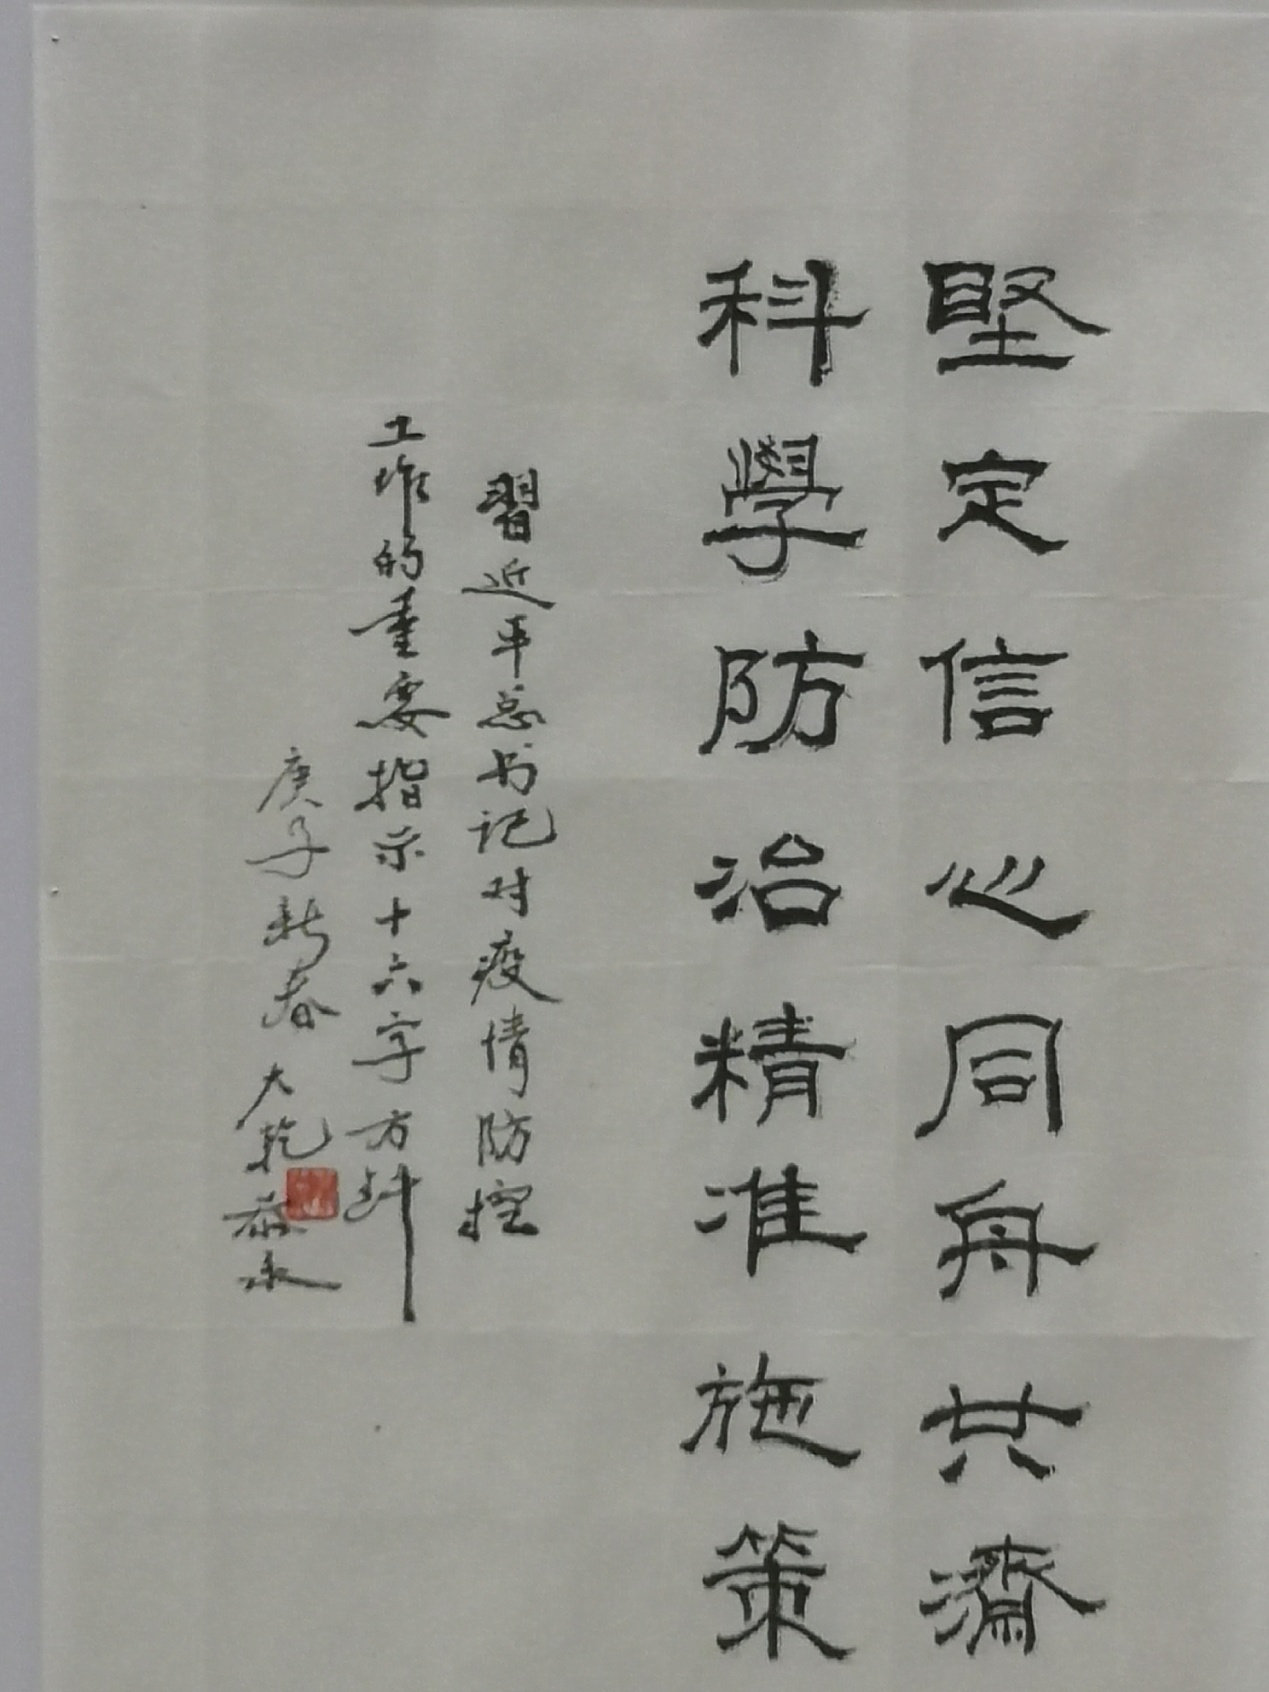 堅定信心同舟共濟
科學防治精准施策
習近平总书记对疫情防控
工作的重要指示十六字方針
庚子新春 大乾